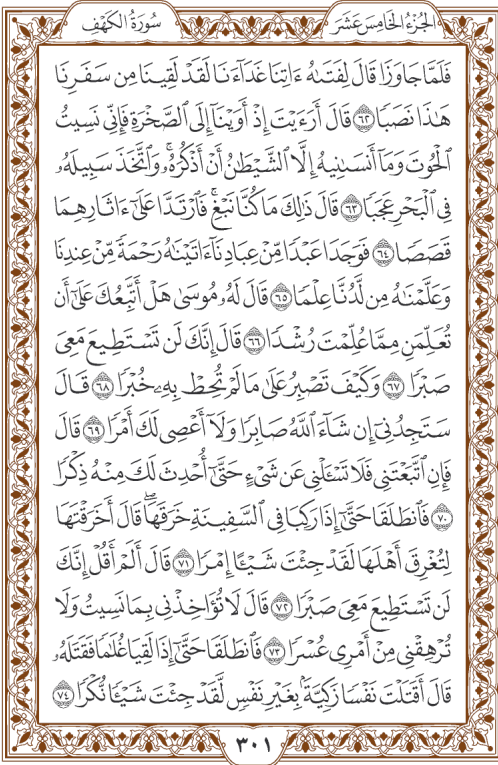 الجُزْءُ الخَامِسَ عَشَرَ
سُورَةُ الكَهْفِ
فَلَمَّا جَاوَزَا قَالَ لِفَتَىٰهُ ءَاتِنَا غَدَآءَنَا لَقَدْ لَقِينَا مِن سَفَرِنَا
هَٰذَا نَصَبًا ٦٢ قَالَ أَرَءَيْتَ إِذْ أَوَيْنَآ إِلَى ٱلصَّخْرَةِ فَإِنِّى نَسِيتُ
ٱلْحُوتَ وَمَآ أَنسَىٰنِيهُ إِلَّا ٱلشَّيْطَٰنُ أَنْ أَذْكُرَهُۥ ۚ وَٱتَّخَذَ سَبِيلَهُۥ
فِى ٱلْبَحْرِ عَجَبًا ٦٣ قَالَ ذَٰلِكَ مَا كُنَّا نَبْغِ ۚ فَٱرْتَدَّا عَلَىٰٓ ءَاثَارِهِمَا
قَصَصًا ٦٤ فَوَجَدَا عَبْدًا مِّنْ عِبَادِنَآ ءَاتَيْنَٰهُ رَحْمَةً مِّنْ عِندِنَا
وَعَلَّمْنَٰهُ مِن لَّدُنَّا عِلْمًا ٦٥ قَالَ لَهُۥ مُوسَىٰ هَلْ أَتَّبِعُكَ عَلَىٰٓ أَن
تُعَلِّمَنِ مِمَّا عُلِّمْتَ رُشْدًا ٦٦ قَالَ إِنَّكَ لَن تَسْتَطِيعَ مَعِىَ
صَبْرًا ٦٧ وَكَيْفَ تَصْبِرُ عَلَىٰ مَا لَمْ تُحِطْ بِهِۦ خُبْرًا ٦٨ قَالَ
سَتَجِدُنِىٓ إِن شَآءَ ٱللَّهُ صَابِرًا وَلَآ أَعْصِى لَكَ أَمْرًا ٦٩ قَالَ
فَإِنِ ٱتَّبَعْتَنِى فَلَا تَسْـَٔلْنِى عَن شَىْءٍ حَتَّىٰٓ أُحْدِثَ لَكَ مِنْهُ ذِكْرًا
٧٠ فَٱنطَلَقَا حَتَّىٰٓ إِذَا رَكِبَا فِى ٱلسَّفِينَةِ خَرَقَهَا ۖ قَالَ أَخَرَقْتَهَا
لِتُغْرِقَ أَهْلَهَا لَقَدْ جِئْتَ شَيْـًٔا إِمْرًا ٧١ قَالَ أَلَمْ أَقُلْ إِنَّكَ
لَن تَسْتَطِيعَ مَعِىَ صَبْرًا ٧٢ قَالَ لَا تُؤَاخِذْنِى بِمَا نَسِيتُ وَلَا
تُرْهِقْنِى مِنْ أَمْرِى عُسْرًا ٧٣ فَٱنطَلَقَا حَتَّىٰٓ إِذَا لَقِيَا غُلَٰمًا فَقَتَلَهُۥ
قَالَ أَقَتَلْتَ نَفْسًا زَكِيَّةًۢ بِغَيْرِ نَفْسٍ لَّقَدْ جِئْتَ شَيْـًٔا نُّكْرًا ٧٤
٣٠١